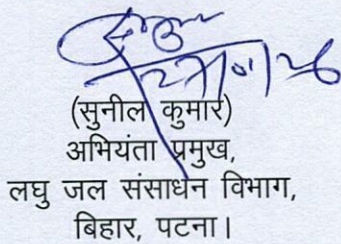 (सुनील कुमार)
अभियंता प्रमुख,
लघु जल संसाधन विभाग,
बिहार, पटना।